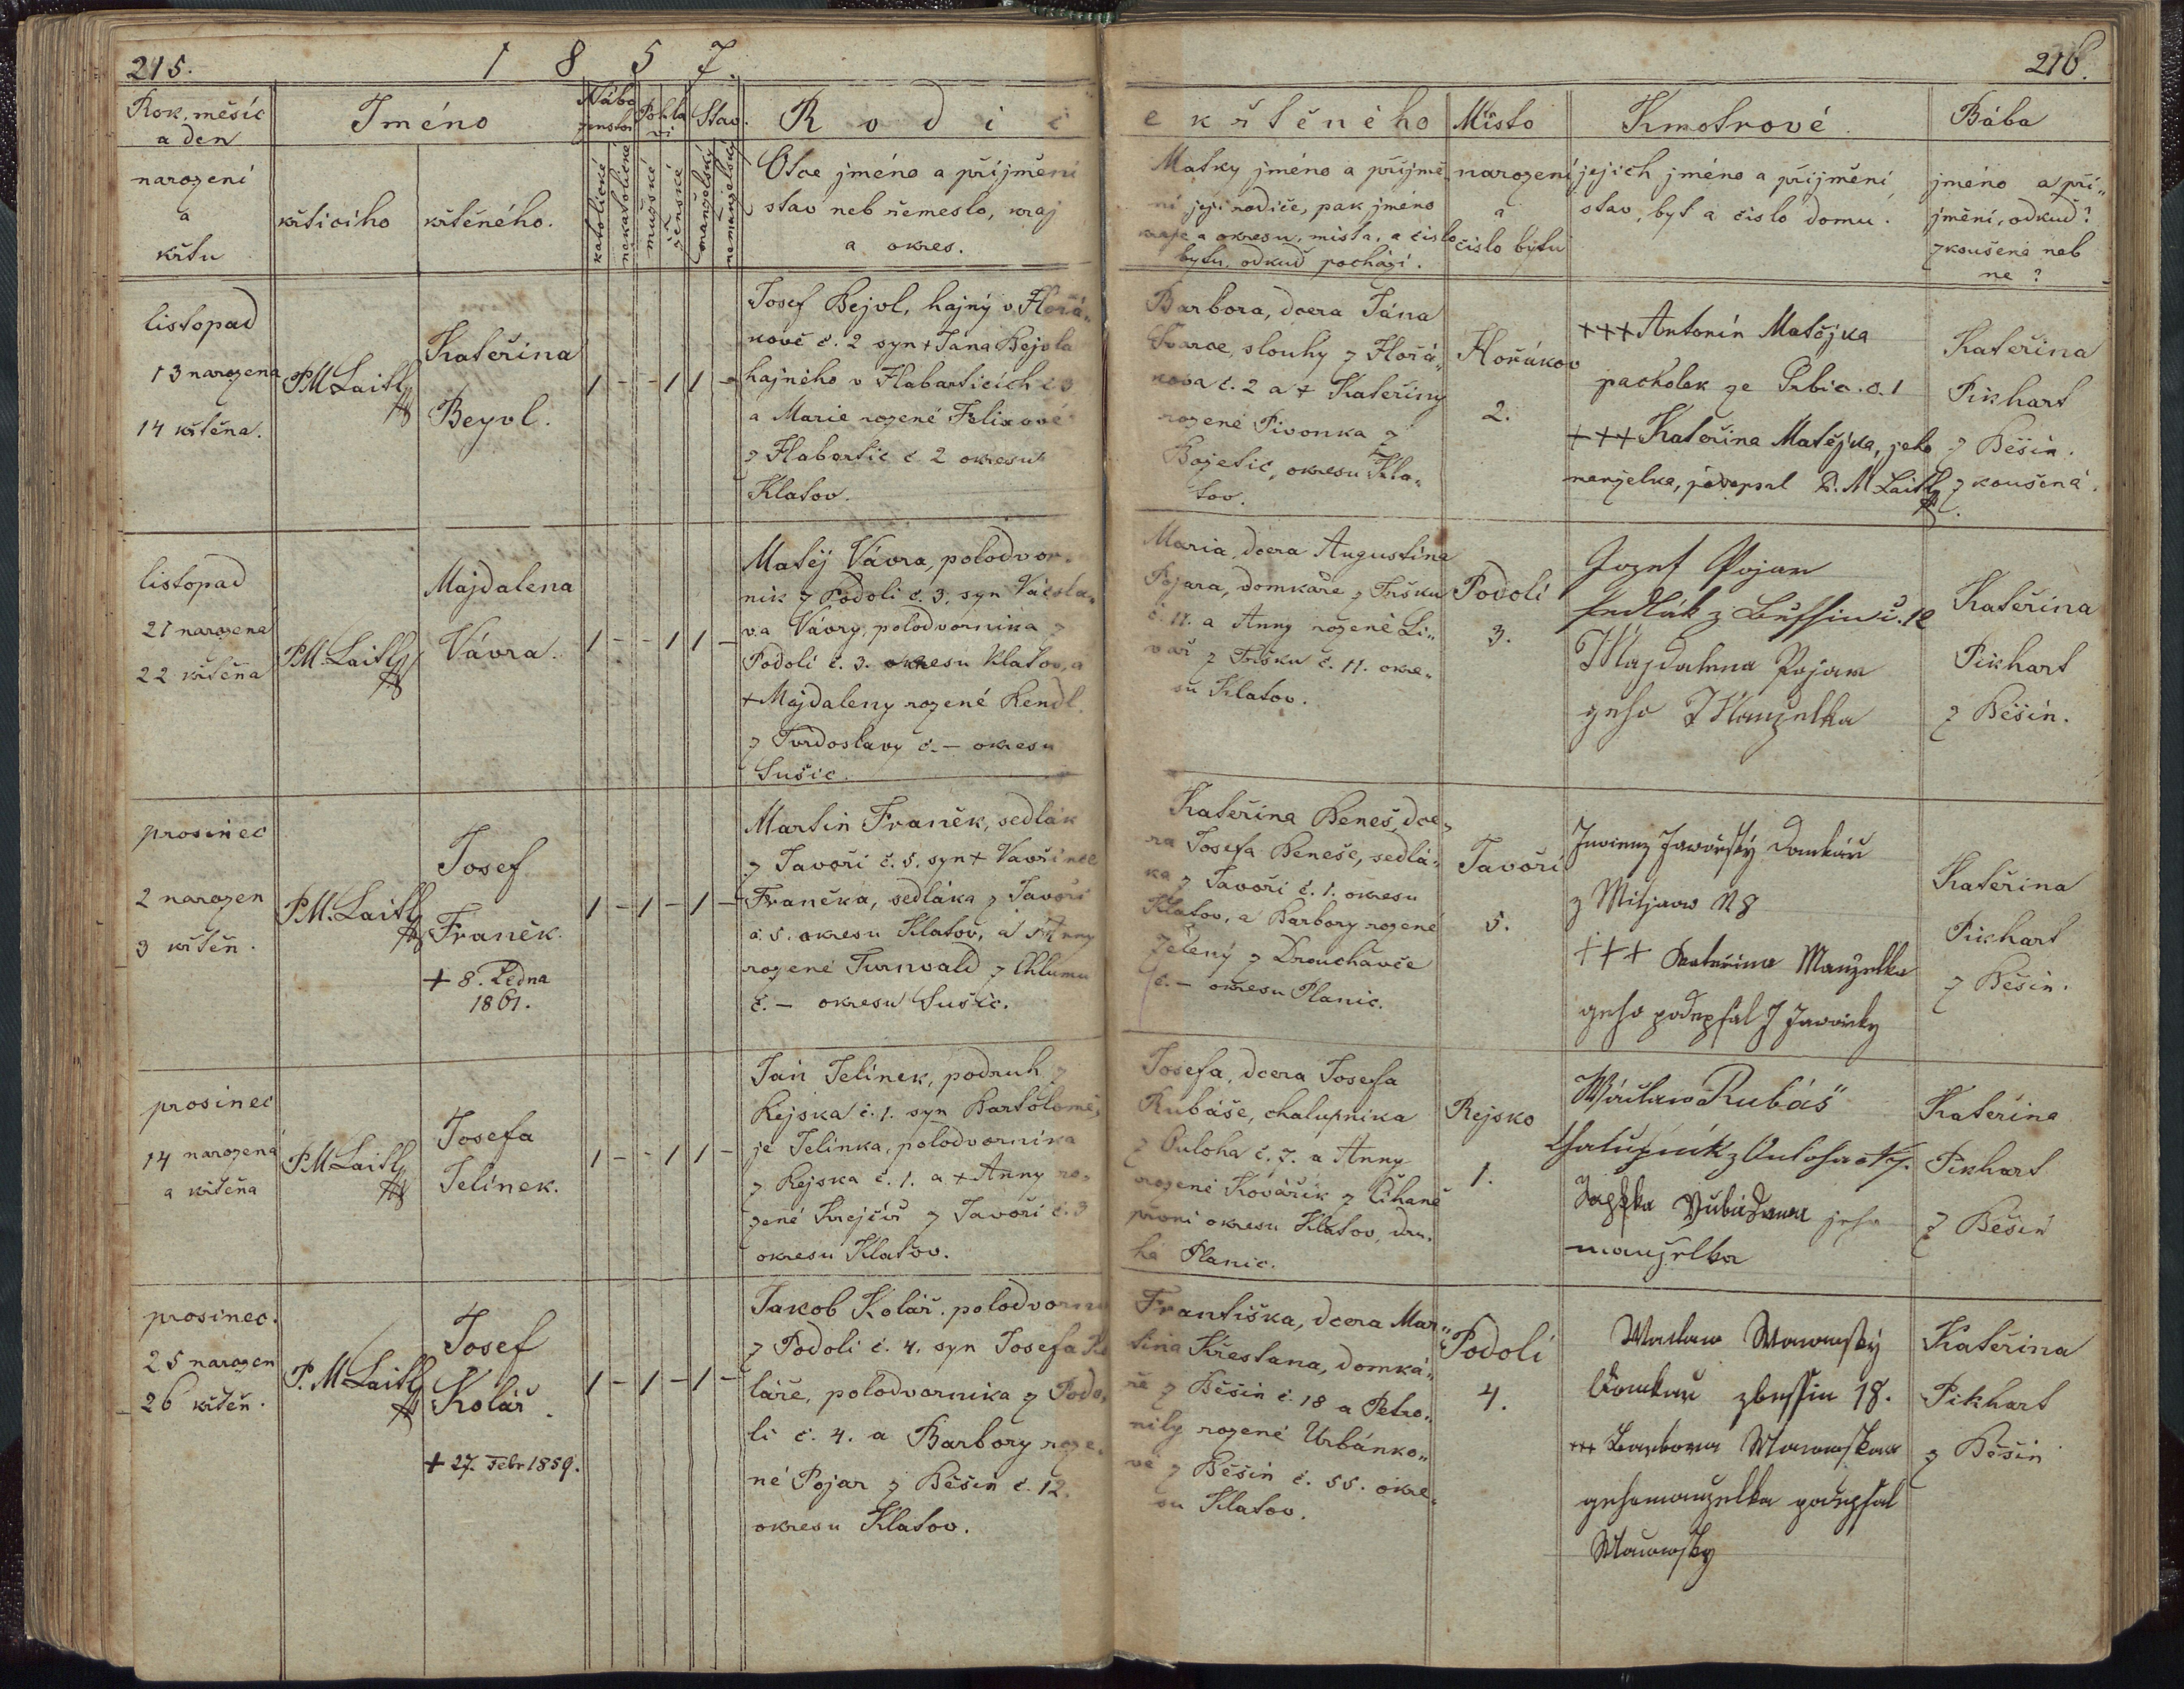 215.
1 8 5 7.
216.
Rok, měsíc
a den
narození
a
křtu
Jméno
křticího
křtěného.
Nábo
ženství
katolické
nekatolické
Pohla
ví
mužské
ženské
Stav.
manželský
nemanželský
R o d i č
Otce jméno a příjmění
stav neb řemeslo, kraj
a okres.
e k ř t ě n é h o
Matky jméno a příjmě„
ní její rodiče, pak jméno
kraje a okresu, místa, a číslo
bytu, odkud pochází.
Místo
narození
a
číslo bytu
Kmotrové.
jejich jméno a příjmění,
stav, byt a číslo domu.
Bába
jméno a pří„
jmění, odkud?
zkoušená neb
ne?
listopad
13 narozena
14 křtěna.
P.M. Laitl
Kateřina
Beyvl.
1 - - 1 1 -
Josef Bejvl, hajný v Hořá„
kově č. 2 syn + Jana Bejvla
hajného v Habarticích č 3
a Marie rozené Felixové
z Habartic č 2 okresu
Klatov.
Barbora, dcera Jána
Švarce, slouhy z Hořá„
kova č. 2 a + Kateřiny
rozené Pivonka z
Bojetic, okresu Kla„
tov.
Hořákov
2.
+++ Antonín Matějka
pacholek ze Srbic. č. 1
+++ Kateřina Matějka, jeho
manželka, podepsal P. M Laitl
Kateřina
Pikhart
z Běšin.
zkoušená.
listopad
21 narozena
22 křtěna
P.M. Laitl
Majdalena
Vávra.
1 - - 1 1 -
Matěj Vávra, polodvor„
ník z Podolí č. 3. syn Václa„
va Vávry, polodvorníka z
Podolí č. 3. okresu Klatov, a
+ Majdaleny rozené Rendl.
z Tvrdoslavy č. – okresu
Sušic.
Maria, dcera Augustina
Pojara, domkáře z Tušku
č. 11. a Anny rozené Li„
vař z Tušku č. 11. okre„
su Klatov.
Podolí
3.
Jozef Pojar
sedlák z Běssin č. 12
Majdalena Pojar
geho Manzelka
Kateřina
Pikhart
z Běšin.
prosinec
2 narozen
3 křtěn.
P.M. Laitl
Josef
Franěk.
+ 8. Ledna
1861.
1 - 1 - 1 -
Martin Franěk, sedlák
z Javoří č. 5. syn + Vavřince
Fraňka, sedláka z Javoří
č. 5. okresu Klatov, a + Anny
rozené Turnvald z Chlumu
č. – okresu Sušic.
Kateřina Beneš, dce„
ra Josefa Beneše, sedlá„
ka z Javoří č. 1. okresu
Klatov, a Barbory rozené
Zelený z Drouhavče
č. – okresu Planic.
Javoří
5.
Jaworský Domkář
z Miljaw N 8
+++ Kateřina Manželka
geho podepsal J Jaworsky
Kateřina
Pikhart
z Běšin.
prosinec
14 narozená
a křtěna
P.M. Laitl
Josefa
Jelínek.
1 - - 1 1 -
Jan Jelínek, podruh z
Rejska č. 1. syn Bartolomě„
je Jelínka, polodvorníka
z Rejska č. 1. a + Anny ro„
zené Krejčíř z Javoří č. 3
okresu Klatov.
Josefa, dcera Josefa
Rubáše, chalupníka
z Ouloha č. 7. a Anny
rozené Kovářík z Číhaně
první okresu Klatov, dru„
há Planic.
Rejsko
1.
Wáclaw Rubáš
Chalupník z Aulohu č 7.
Rubášowa jeho
manželka
Kateřina
Pikhart
z Běšin
prosinec.
25 narozen
26 křtěn.
P. M Laitl
Josef
Kolář.
+ 27. Febr 1859.
1 - 1 - 1 -
Jakob Kolář, polodvorník
z Podolí č. 4. syn Josefa Ko
láře, polodvorníka z Podo„
lí č. 4. a Barbory roze„
né Pojar z Běšin č. 12.
okresu Klatov.
Františka, dcera Mar„
tina Křesťana, domká„
ře z Běšin č. 18 a Petro„
nily rozené Urbánko„
vé z Běšin č. 55. okre„
su Klatov.
Podolí
4.
Waclaw Wawowský
Domkař zbessin 18.
+++ Barbora
gehomanzelka podepsal
Kateřina
Pikhart
z Běšin